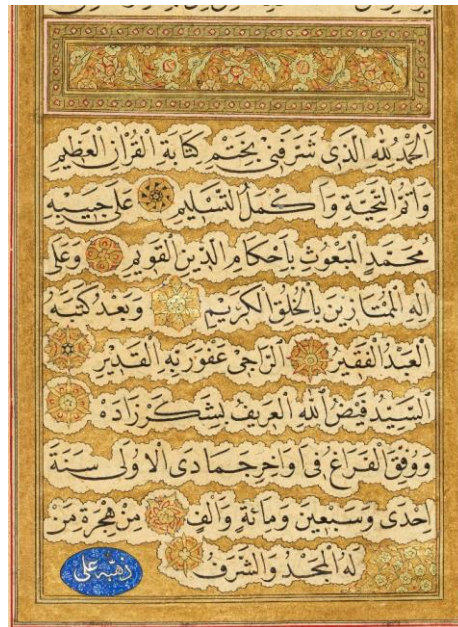 الحمد لله الذى شرفنى بختم كتابة القرآن العظيم
واتم التحية واكمل التسليم على حبيبه
محمد المبعوث باحكام الدين القويم وعلى
اله الممتازين بالخلق الكريم وبعد كتبه
العبد الفقير الراجى عفو ربه القدير
السيد فيض الله العريف بشكرزاده
ووفق الفراغ فى اواخر جمادى الاولى سنة
احدى وسبعين ومائة والف من هجرة من
له المجد والشرف
ذهبه على